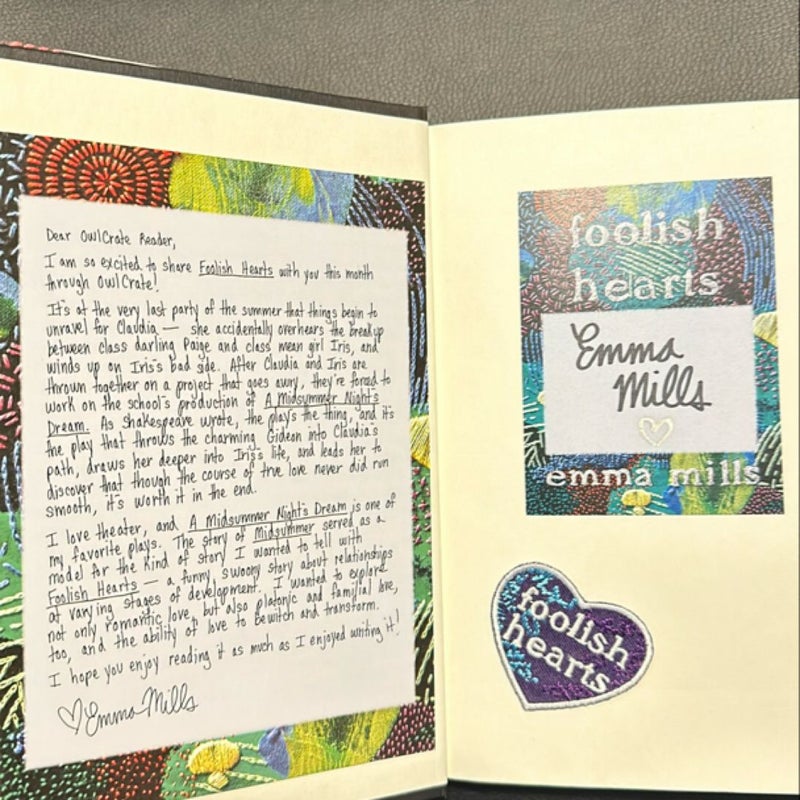 Dear OwlCrate Reader,
I am so excited to share Foolish Hearts with you this month
through OwlCrate!
It's at the very last party of the summer that things begin to
unravel for Claudia — she accidentally overhears the breakup
between class darling Paige and class mean girl Iris, and
winds up on Iris's bad side. After Claudia and Iris are
thrown together on a project that goes awry, they're forced to
work on the school's production of A Midsummer Night's
Dream. As Shakespeare wrote, the play's the thing, and it's
the play that throws the charming Gideon into Claudia's
path, draws her deeper into Iris's life, and leads her to
discover that though the course of true love never did run
smooth, it's worth it in the end.
I love theater, and A Midsummer Night's Dream is one of
my favorite plays. The story of Midsummer served as a
model for the kind of story I wanted to tell with
Foolish Hearts — a funny, swoony story about relationships
at varying stages of development. I wanted to explore
not only romantic love, but also platonic and familial love,
too, and the ability of love to bewitch and transform.
I hope you enjoy reading it as much as I enjoyed writing it!
Emma Mills
foolish
hearts
Emma
Mills
emma mills
foolish
hearts